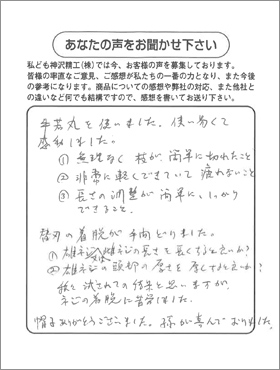 あなたの声をお聞かせ下さい
私ども神沢精工(株)では今、お客様の声を募集しております。
皆様の率直なご意見、ご感想が私たちの一番の力となり、また今後
の参考になります。商品についての感想や弊社の対応、また他社と
の違いなど何でも結構ですので、感想を書いてお送り下さい。
を使いました。使い易くて
感動しました。
① 無理なく枝が簡単に切れたこと
② 非常に軽くできていて疲れないこと
③ 長さの調整が簡単に、しっかり
できること。
替刃の着脱が手間どりました。
① 雄ネジ 雌ネジの長さを長くすると良いか?
② 雄ネジの頭部の厚さを厚くすると良いか?
試されての結果と思いますが、
ネジの着脱に苦労しました。
帽子ありがとうございました。孫が喜んでおりました